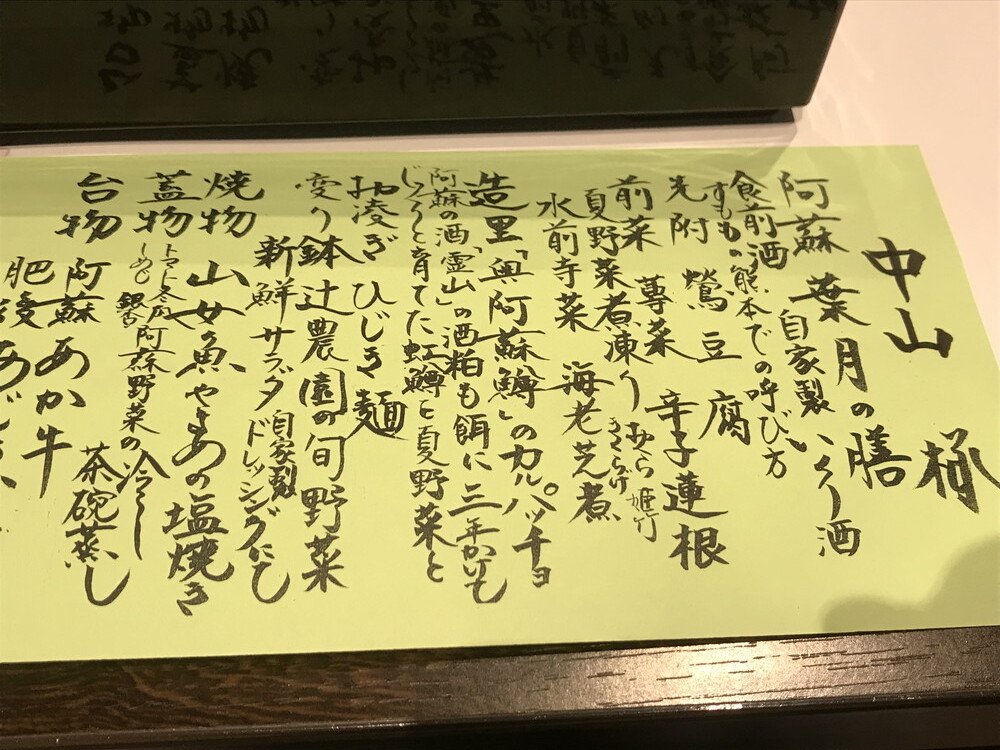 中山 様
阿蘇 葉月の膳
食前酒 自家製いくり酒
すももの熊本での呼び方
先附 鶯豆腐 辛子蓮根
前菜 蓴菜
夏野菜煮凍り おくら 姫竹 きくらげ
水前寺菜 海老芝煮
造里 「奥阿蘇鱒」のカルパッチョ
阿蘇の酒「霊山」の酒粕も餌に 三年かけて
じっくりと育てた虹鱒と夏野菜と
お凌ぎ ひじき麺
変り鉢 辻農園の旬野菜
新鮮サラダ 自家製ドレッシングにて
焼物 山女魚やまめの塩焼き
蓋物 トマト 冬瓜 しめじ 銀杏 阿蘇野菜の冷し茶碗蒸し
台物 阿蘇あか牛
肥後あ